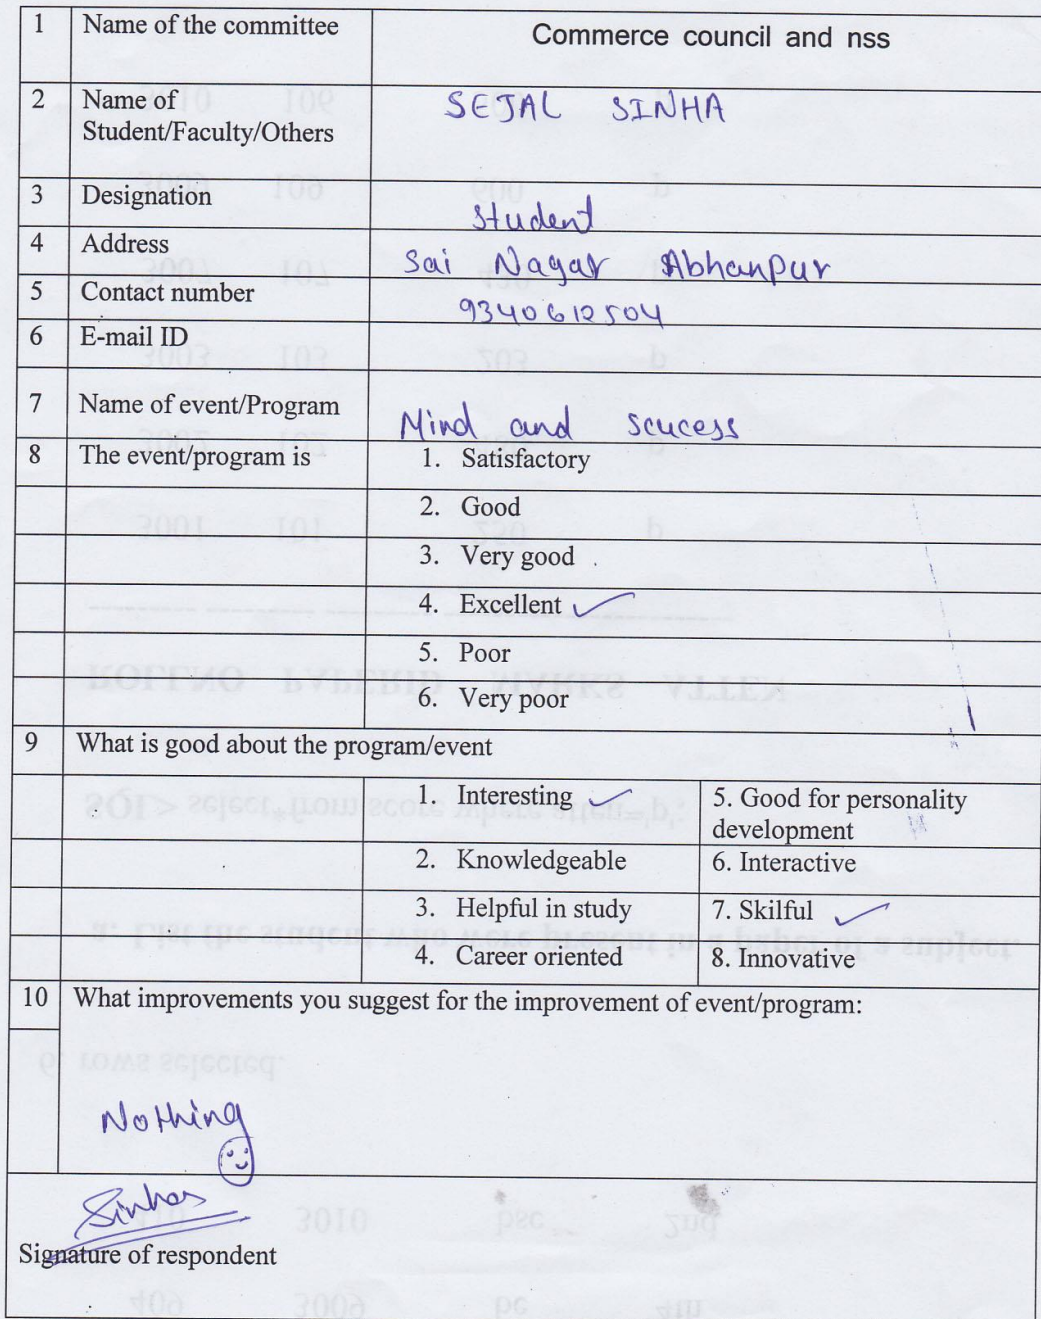 1 Name of the committee Commerce council and nss
2 Name of SEJAL SINHA
Student/Faculty/Others
3 Designation Student
4 Address Sai Nagar Abhanpur
5 Contact number 9340612504
6 E-mail ID
7 Name of event/Program Mind and scucess
8 The event/program is 1. Satisfactory
2. Good
3. Very good
4. Excellent ✓
5. Poor
6. Very poor
9 What is good about the program/event
1. Interesting ✓ 5. Good for personality
development
2. Knowledgeable 6. Interactive
3. Helpful in study 7. Skilful ✓
4. Career oriented 8. Innovative
10 What improvements you suggest for the improvement of event/program:
Nothing
Sinha
Signature of respondent